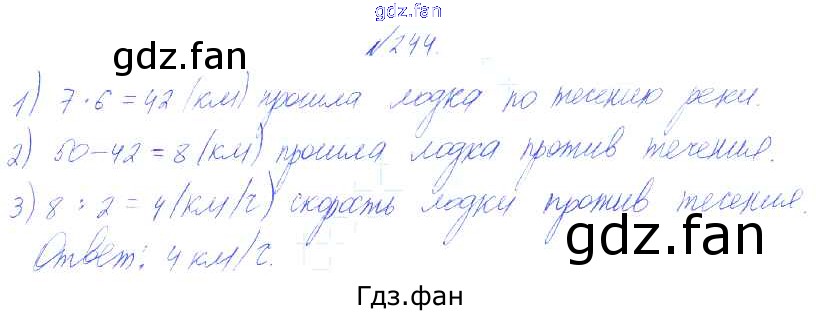 gdz.fan
gdz.fan
№244.
1) 7·6=42 (км) прошла лодка по течению реки.
2) 50-42=8 (км) прошла лодка против течения.
3) 8:2=4 (км/ч) скорость лодки против течения.
gdz.fan
Ответ: 4 км/ч.
Гдз.фан